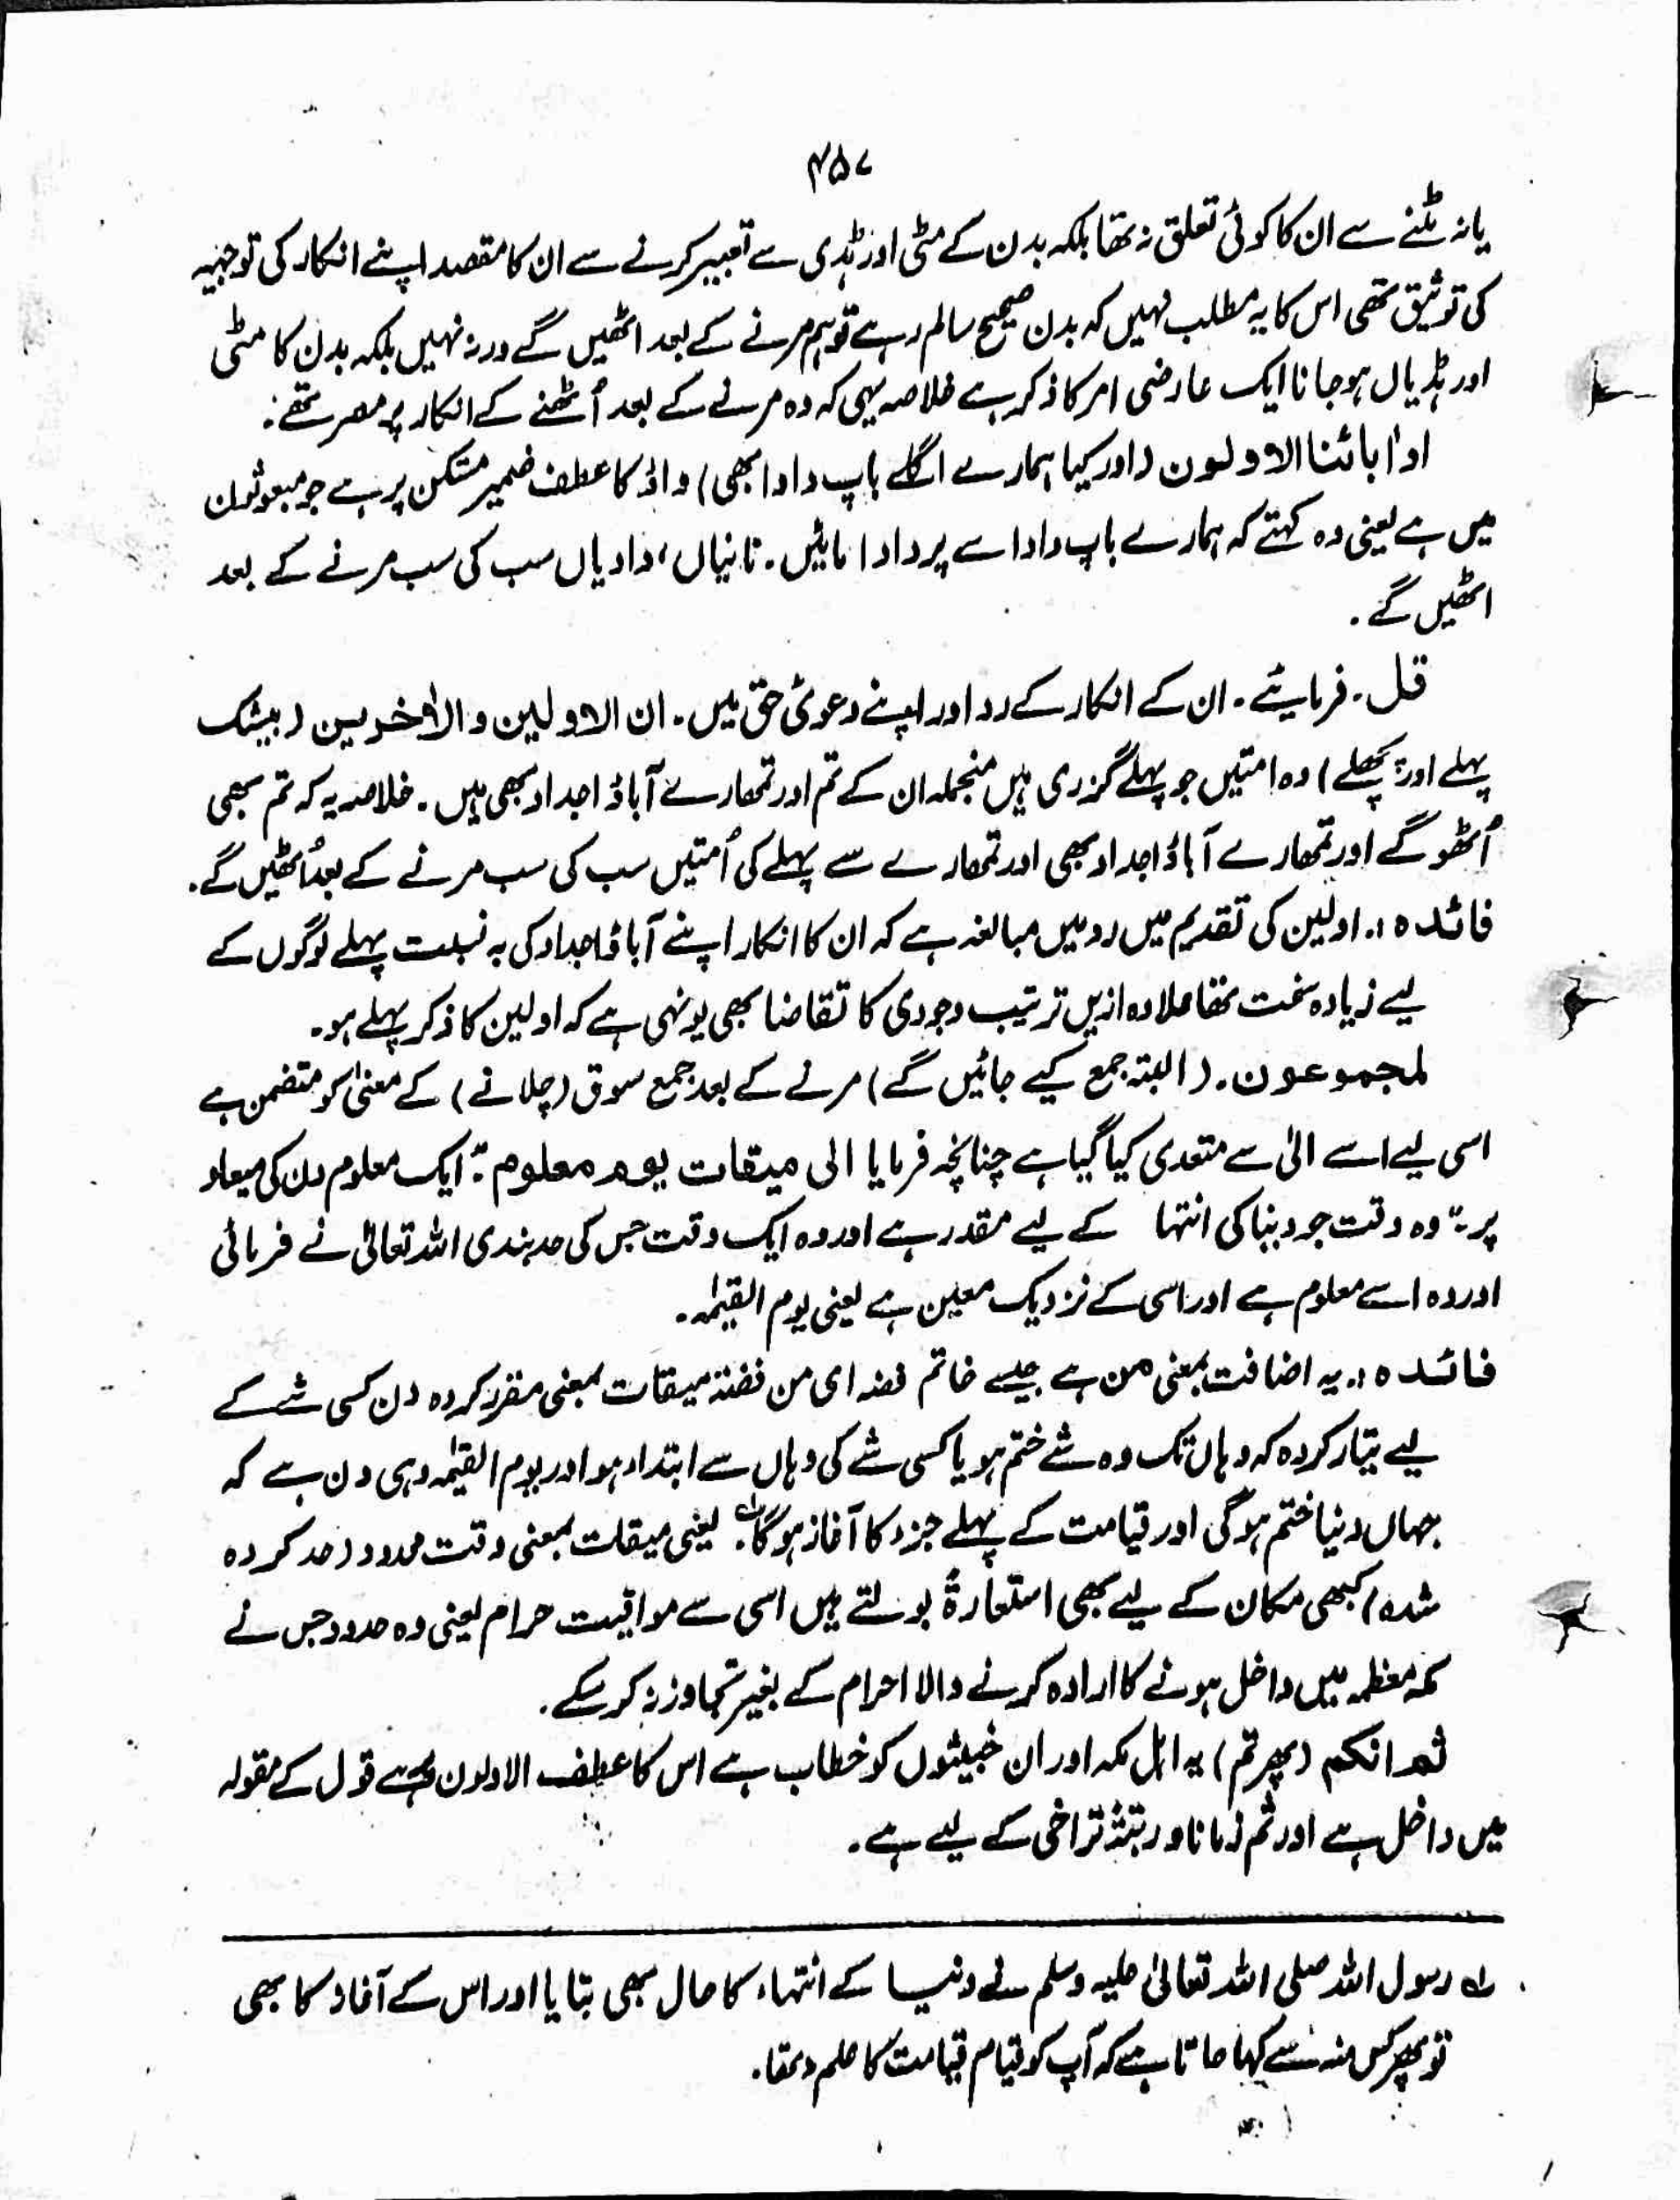 ۴۵۷
یا نہ بٹنے سے ان کا کوئی تعلق نہ تھا بلکہ بدن کے مٹی اور ہڈی سے تعبیر کرنے سے ان کا مقصد اپنے انکار کی توجیہہ
کی توثیق تھی اس کا یہ مطلب نہیں کہ بدن صحیح سالم رہے تو ہم مرنے کے بعد اٹھیں گے ورنہ نہیں بلکہ بدن کا مٹی
اور ہڈیاں ہو جانا ایک عارضی امر کا ذکر ہے خلاصہ یہی کہ وہ مرنے کے بعد اُٹھنے کے انکار پر مصر تھے :
او اٰبائنا الاولون (اور کیا ہمارے اگلے باپ دادا بھی) واؤ کا عطف ضمیر مستکن پر ہے جو مبعوثون
میں ہے یعنی وہ کہتے کہ ہمارے باپ دادا سے پردادا مائیں۔ نانیاں، دادیاں سب کی سب مرنے کے بعد
اٹھیں گے ۔
قل۔ فرمایئے۔ ان کے انکار کے رد اور اپنے دعویٰ حق میں۔ ان الاولین و الاٰخرین (بیشک
پہلے اور پچھلے) وہ امتیں جو پہلے گزری ہیں منجملہ ان کے تم اور تمھارے آباؤ اجداد بھی ہیں۔ خلاصہ یہ کہ تم بھی
اُٹھو گے اور تمھارے آباؤ اجداد بھی اور تمھارے سے پہلے کی اُمتیں سب کی سب مرنے کے بعد اُٹھیں گے۔
فائدہ :۔ اولین کی تقدیم میں رد میں مبالغہ ہے کہ ان کا انکار اپنے آباؤ اجداد کی بہ نسبت پہلے لوگوں کے
لیے زیادہ سخت تھا علاوہ ازیں ترتیب وجودی کا تقاضا بھی یونہی ہے کہ اولین کا ذکر پہلے ہو۔
لمجموعون۔ (البتہ جمع کیے جائیں گے) مرنے کے بعد جمع سوق (چلانے) کے معنیٰ کو متضمن ہے
اسی لیے اسے الیٰ سے متعدی کیا گیا ہے چنانچہ فرمایا الی میقات یوم معلوم " ایک معلوم دن کی میعاد
پر " وہ وقت جو دنیا کی انتہا کے لیے مقدر ہے اور وہ ایک وقت جس کی حد بندی اللہ تعالیٰ نے فرمائی
اور وہ اسے معلوم ہے اور اسی کے نزدیک معین ہے یعنی یوم القیٰمہ۔
فائدہ :۔ یہ اضافت بمعنی من ہے جیسے خاتم فضہ ای من فضۃ میقات بمعنی مقرر کردہ دن کسی شے کے
لیے تیار کردہ کہ وہاں تک وہ شے ختم ہو یا کسی شے کی وہاں سے ابتداء ہو اور یوم القیٰمہ وہی دن ہے کہ
جہاں دنیا ختم ہوگی اور قیامت کے پہلے جزء کا آغاز ہوگا۔ یعنی میقات بمعنی وقت محدود (حد کردہ
شدہ) کبھی مکان کے لیے بھی استعارۃً بولتے ہیں اسی سے مواقیت حرام یعنی وہ حدود جس نے
مکہ معظمہ میں داخل ہونے کا ارادہ کرنے والا احرام کے بغیر تجاوز نہ کر سکے ۔
ثم انکم (پھر تم) یہ اہل مکہ اور ان خبیثوں کو خطاب ہے اس کا عطف الاولون قول کے مقولہ
میں داخل ہے اور ثم زمانا و رتبۃً تراخی کے لیے ہے۔
لہ رسول اللہ صلی اللہ تعالیٰ علیہ وسلم نے دنیا کے انتہاء کا حال بھی بتایا اور اس کے آغاز کا بھی
تو پھر کس منہ سے کہا جاتا ہے کہ آپ کو قیام قیامت کا علم نہ تھا۔